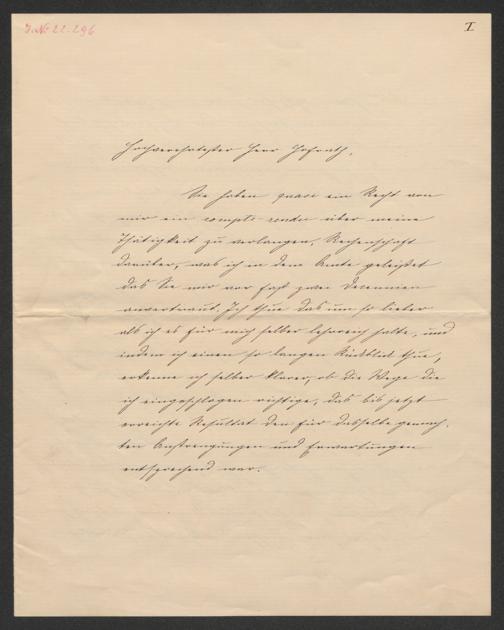 I. N. 22.296
I
Hochverehrtester Herr Hofrath,
Sie haben quasi ein Recht von
mir ein compte rendu über meine
Thätigkeit zu verlangen, Rechenschaft
darüber, was ich in dem Amte geleistet
das Sie mir vor fast zwei Decennien
anvertraut. Ich thue das um so lieber
als ich es für mich selber lehrreich halte, und
indem ich einen so langen Rückblick thue,
erkenne ich selber klarer, ob die Wege die
ich eingeschlagen richtige, das bis jetzt
erreichte Resultat den für dasselbe gemach-
ten Anstrengungen und Erwartungen
entsprechend war.